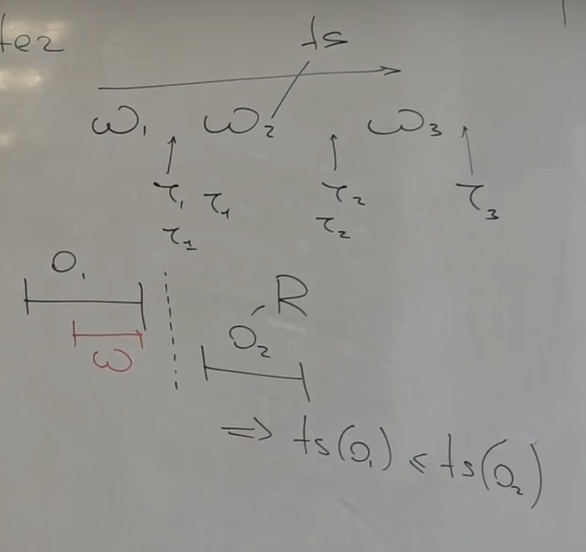 ts
ω₁ ω₂ ω₃
τ₁ τ₁ τ₂ τ₃
τ₁ τ₂
O₁
R
O₂
ω
⇒ ts(O₁) ≤ ts(O₂)